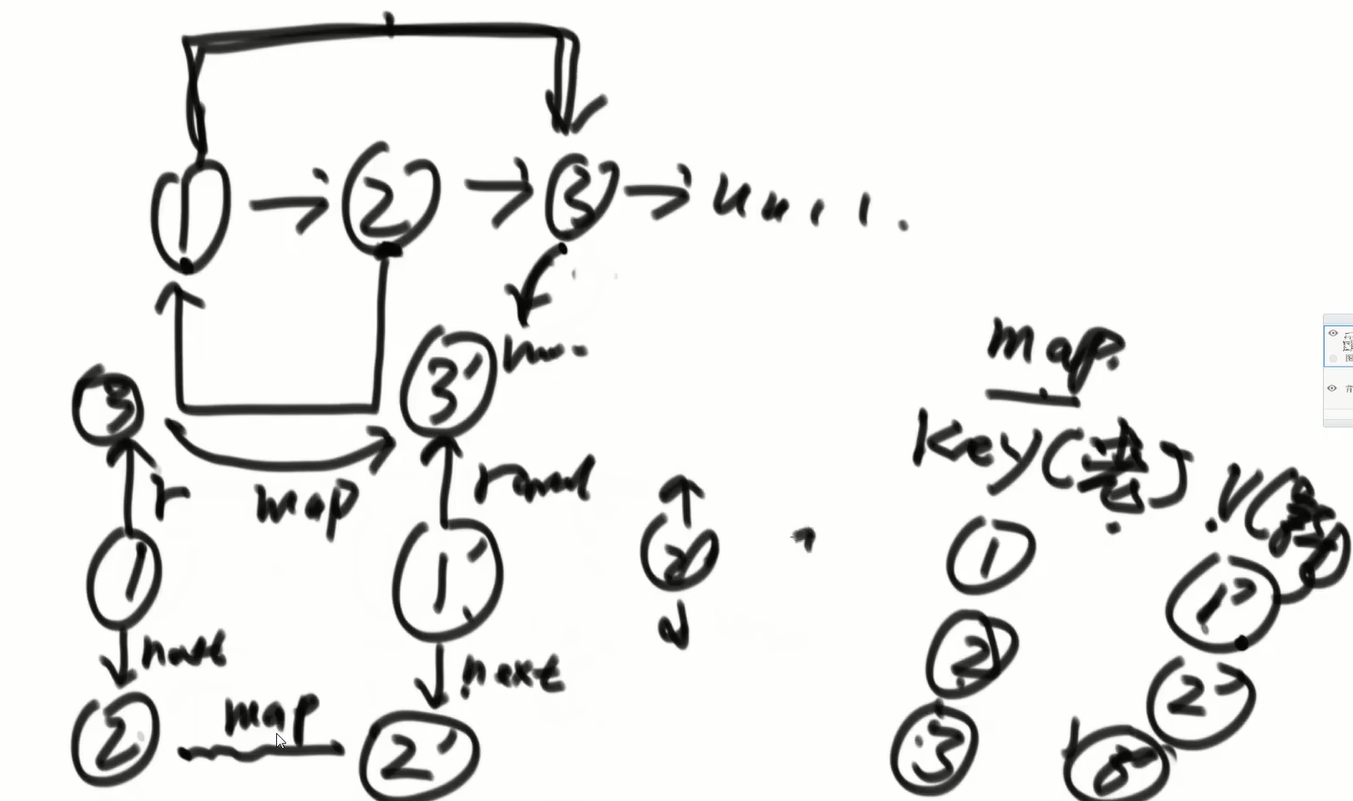 1 → 2 → 3 → null.
3
3'
map
r
rand
1
1'
2
next
next
2
map
2'
map.
key(老)
1
1'
2
2'
3